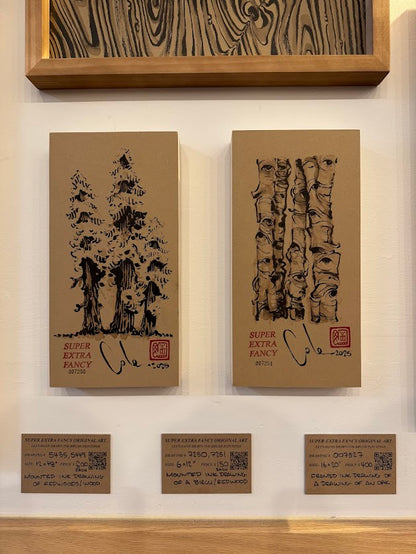 SUPER
EXTRA
FANCY
007250
Cole -2025
SUPER
EXTRA
FANCY
007251
Cole -2025
SUPER EXTRA FANCY ORIGINAL ART
DRAWING #
SIZE: 12"x48" PRICE $ 200
EACH
MOUNTED INK DRAWING
OF REDWOODS/WOOD
SUPER EXTRA FANCY ORIGINAL ART
DRAWING # 7250, 7251
SIZE: 6x12" PRICE $ 150
MOUNTED INK DRAWING
OF A BIRCH/REDWOOD
SUPER EXTRA FANCY ORIGINAL ART
DRAWING #
SIZE: 16x20" PRICE $ 400
FRAMED INK DRAWING OF
A DRAWING OF AN OAK